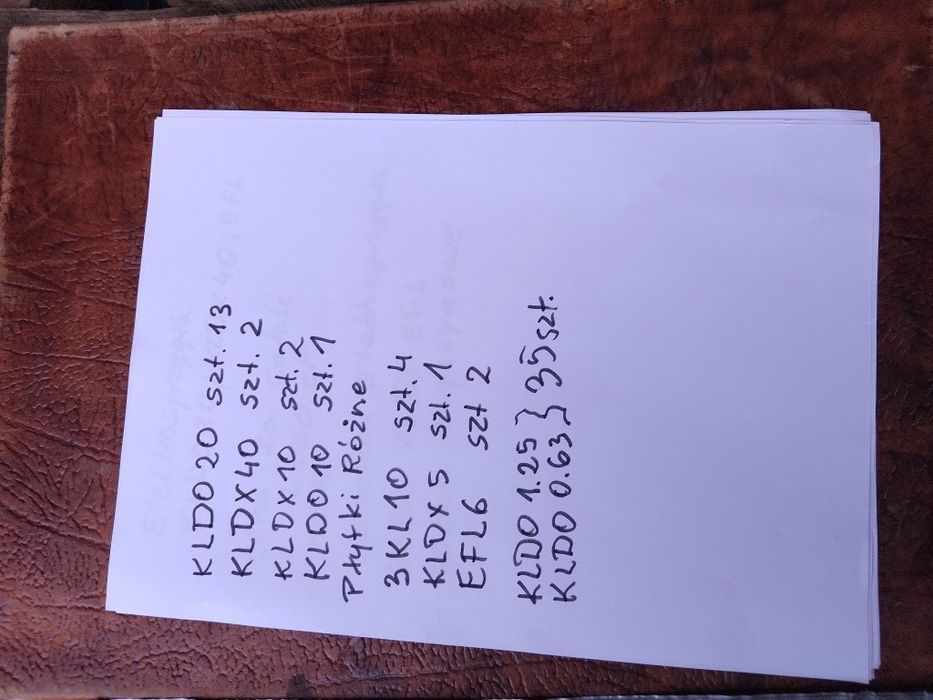 KLDO 20 szt. 13
KLDX 40 szt. 2
KLDX 10 szt. 2
KLDO 10 szt. 1
Płytki Różne
3KL10 szt. 4
KLDX 5 szt. 1
EFL6 szt 2
KLDO 1.25 } 35 szt.
KLDO 0.63